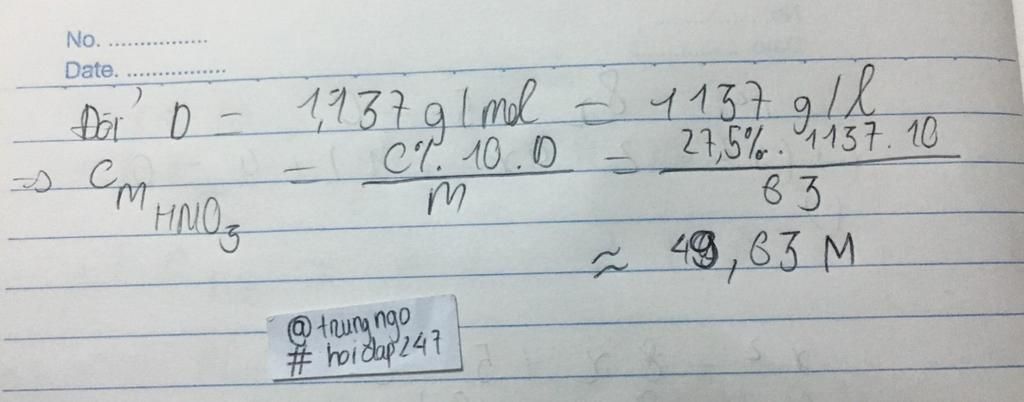 No. ................
Date. ................
Đổi D = 1,137 g/mol = 1137 g/l
=> CM HNO3 = C%. 10. D / M = 27,5%. 1137. 10 / 63
≈ 49,63 M
@trungngo
# hoidap247